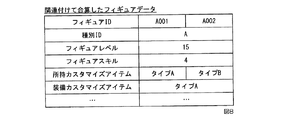 関連付けて合算したフィギュアデータ
フィギュアID A001 A002
種別ID A
フィギュアレベル 15
フィギュアスキル 4
所持カスタマイズアイテム タイプA タイプB
装備カスタマイズアイテム タイプA
… …
図8